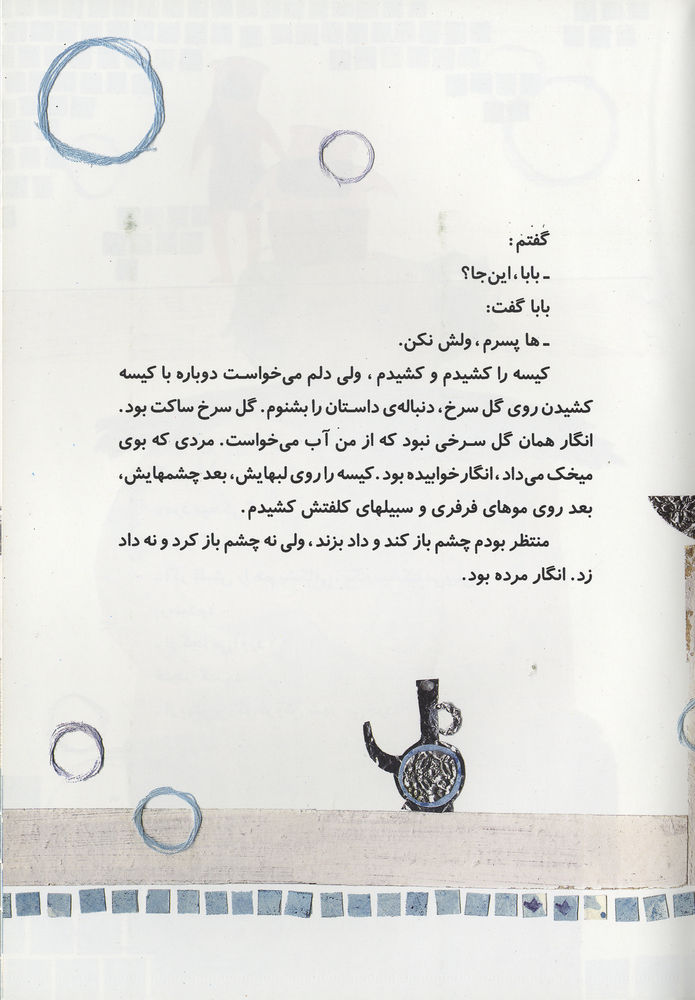 گفتم:
ـ بابا، این‌جا؟
بابا گفت:
ـ ها پسرم، ولش نکن.
کیسه را کشیدم و کشیدم، ولی دلم می‌خواست دوباره با کیسه
کشیدن روی گل سرخ، دنباله‌ی داستان را بشنوم. گل سرخ ساکت بود.
انگار همان گل سرخی نبود که از من آب می‌خواست. مردی که بوی
میخک می‌داد، انگار خوابیده بود. کیسه را روی لبهایش، بعد چشمهایش،
بعد روی موهای فرفری و سبیلهای کلفتش کشیدم.
منتظر بودم چشم باز کند و داد بزند، ولی نه چشم باز کرد و نه داد
زد. انگار مرده بود.